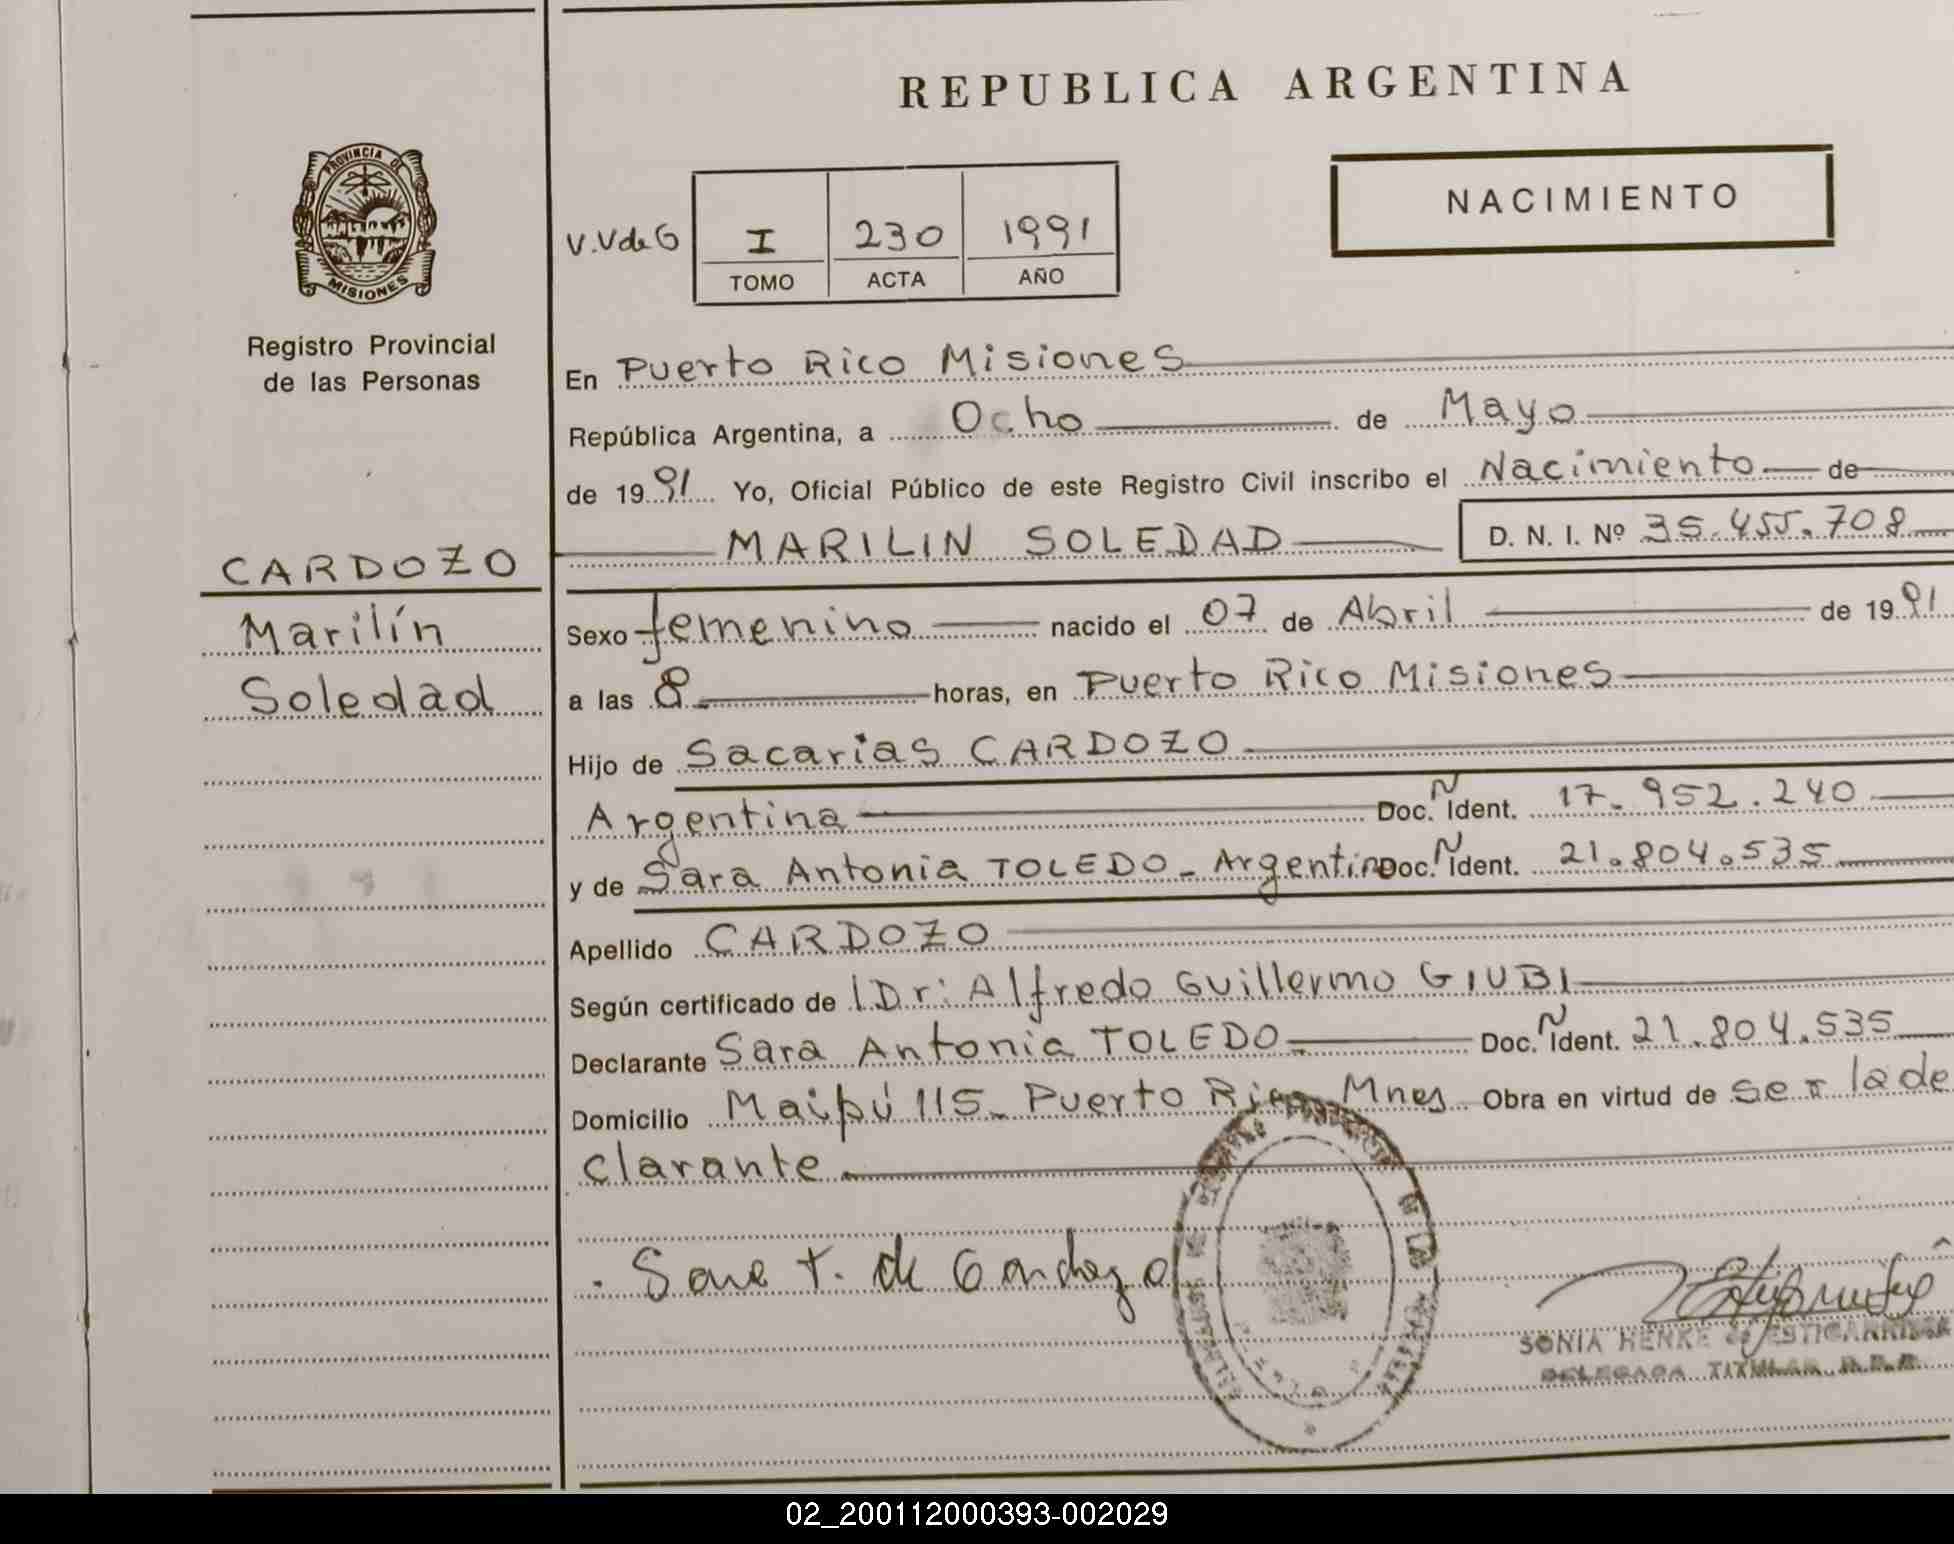 REPUBLICA ARGENTINA
PROVINCIA DE
MISIONES
Registro Provincial
de las Personas
NACIMIENTO
V.V de G I 230 1991
TOMO ACTA AÑO
En Puerto Rico Misiones
República Argentina, a Ocho de Mayo
de 19 91 Yo, Oficial Público de este Registro Civil inscribo el Nacimiento de
MARILIN SOLEDAD D. N. I. Nº 35.455.708
CARDOZO
Marilín
Soledad
Sexo femenino nacido el 07 de Abril de 19 91
a las 8 horas, en Puerto Rico Misiones
Hijo de Sacarias CARDOZO
Argentina Doc. N Ident. 17.952.240
y de Sara Antonia TOLEDO - Argentina Doc. N Ident. 21.804.535
Apellido CARDOZO
Según certificado de Dr: Alfredo Guillermo GIUBI
Declarante Sara Antonia TOLEDO Doc. N Ident. 21.804.535
Domicilio Maipú 115 - Puerto Rico Mnes Obra en virtud de ser la de
clarante
Sara T. de Cardozo
SONIA HENKE de ESTIGARRIBIA
DELEGADA TITULAR
02_200112000393-002029